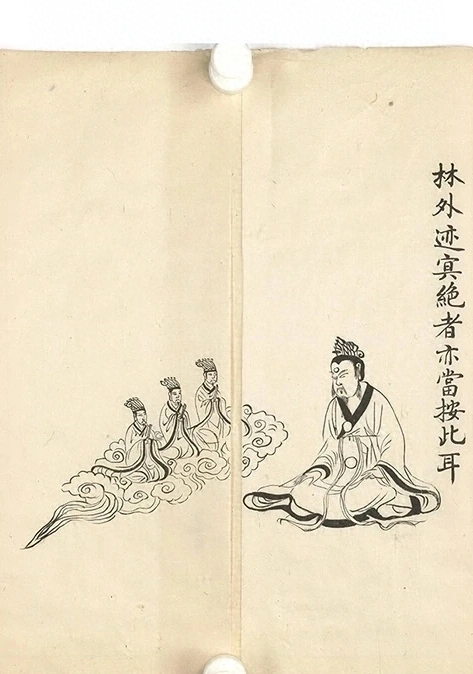 林外迹寘絶者亦當按此耳